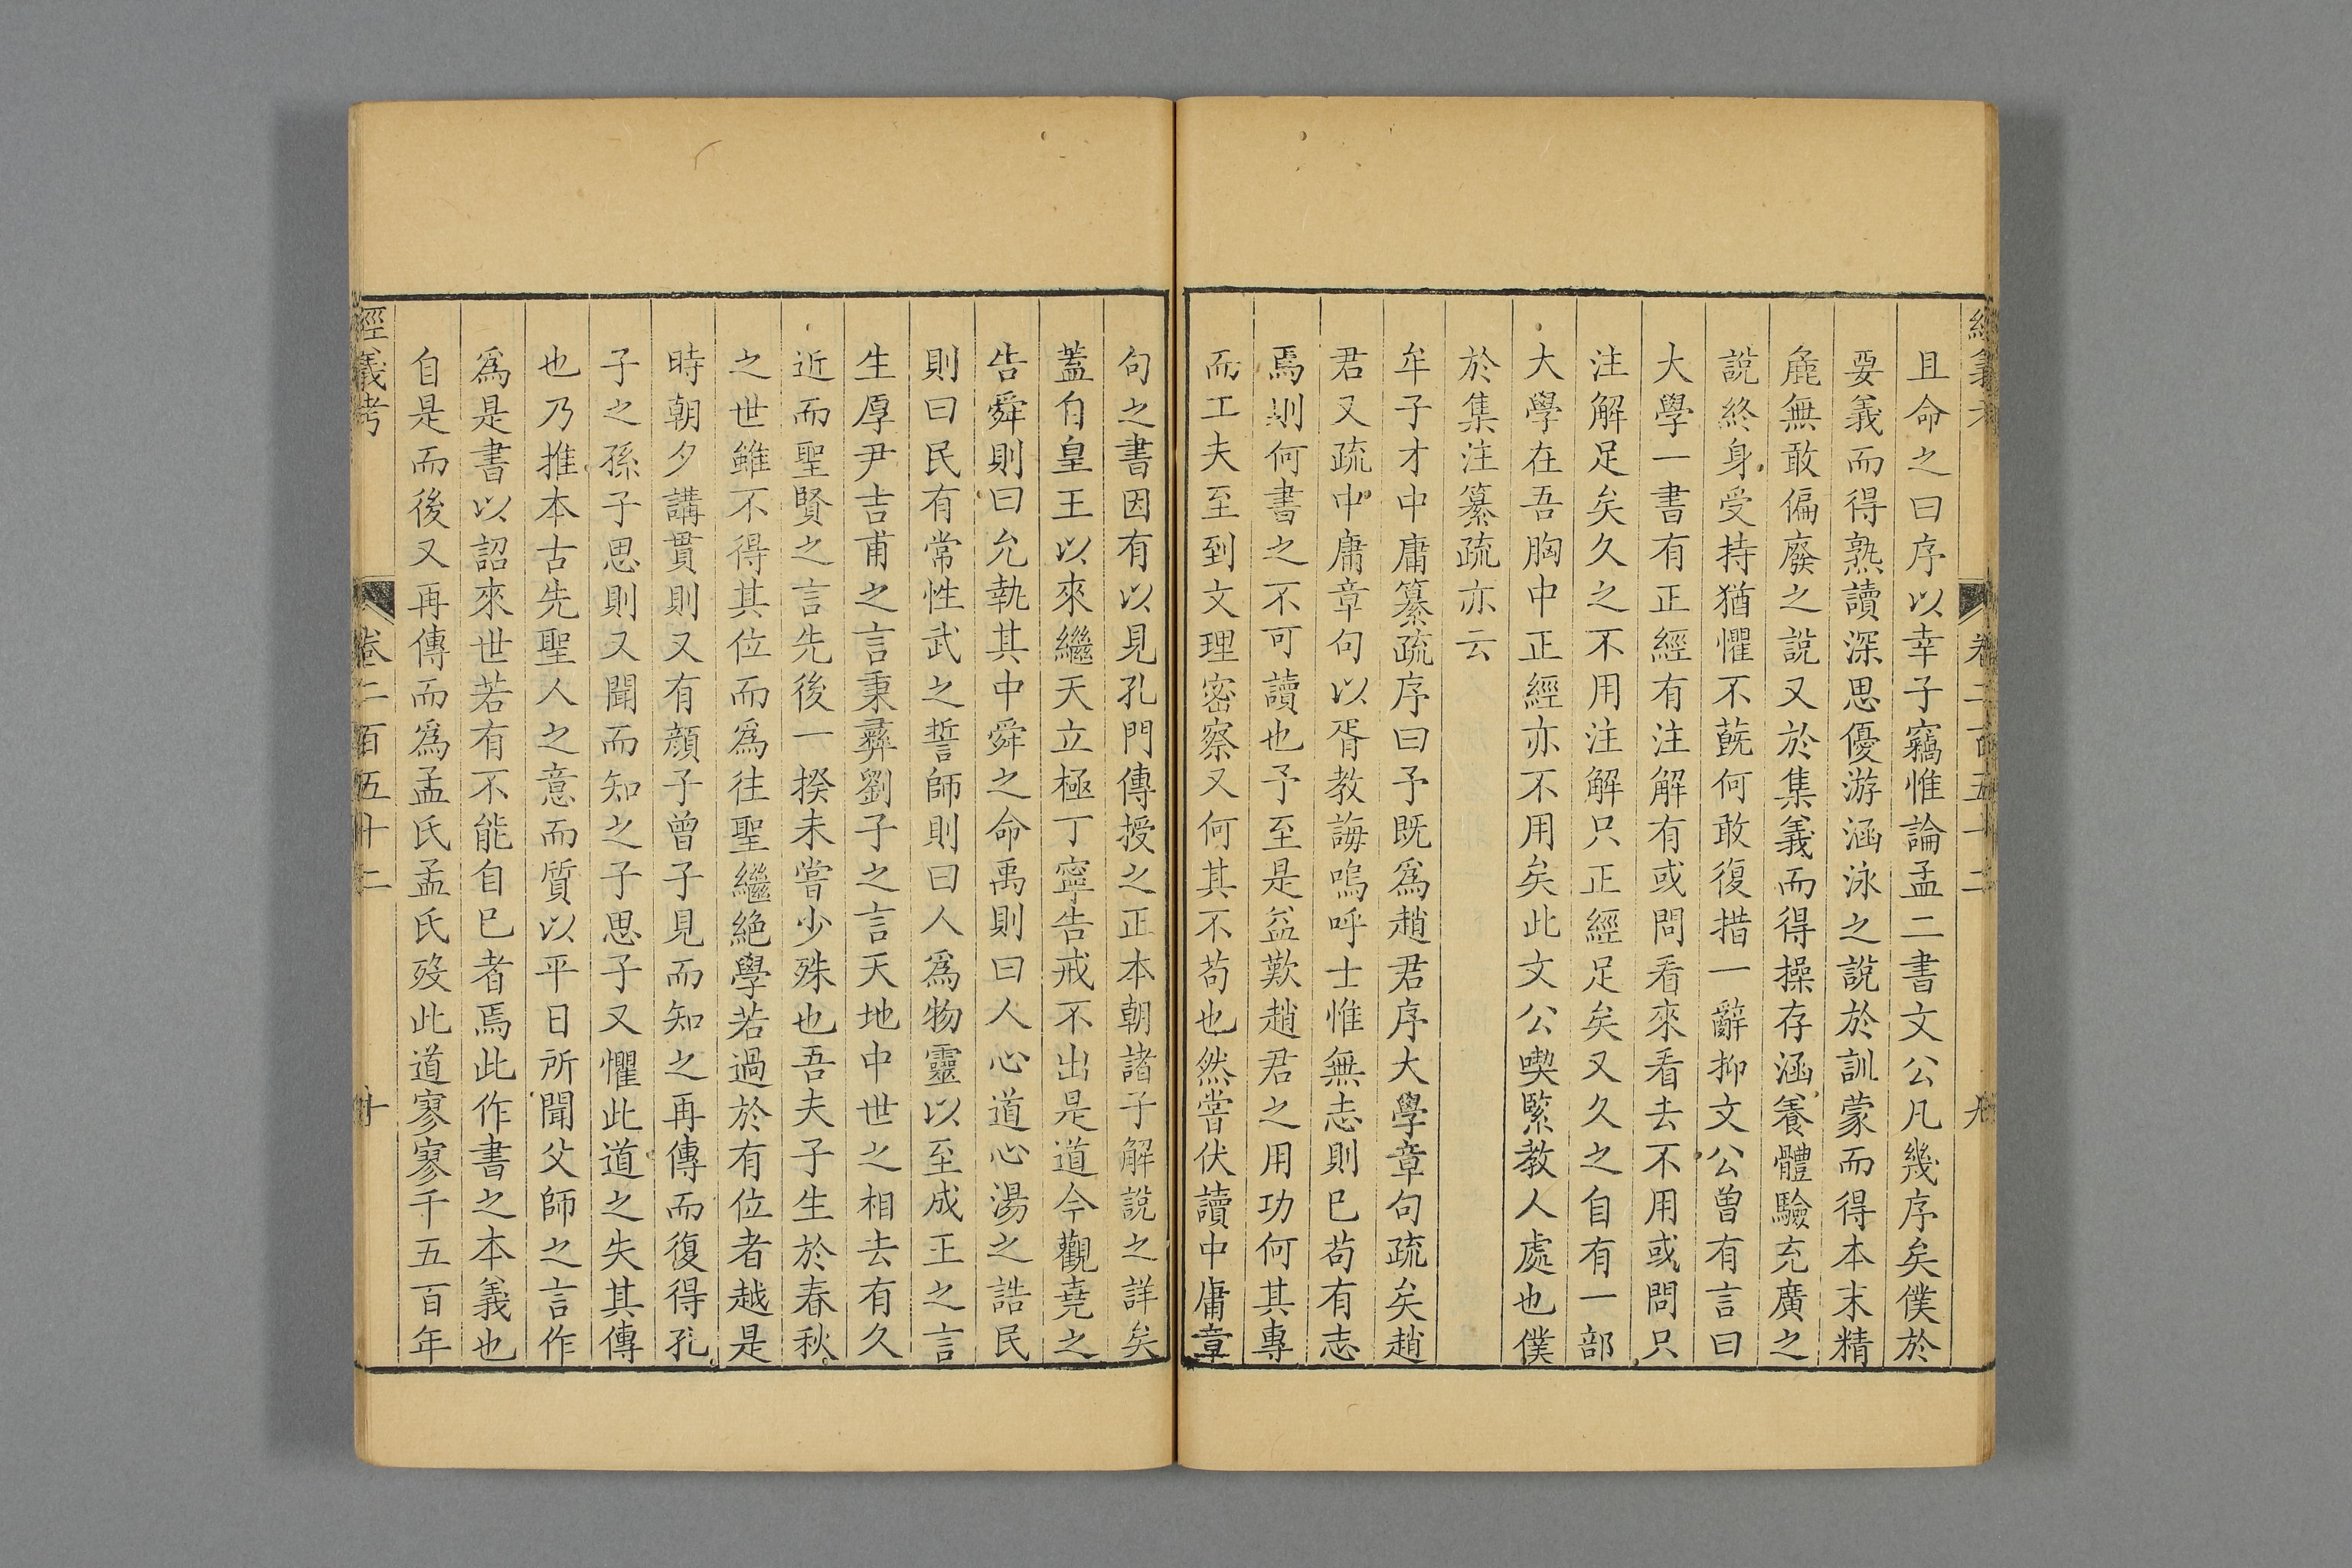 經義考 卷二百五十二 九
且命之曰序以幸子竊惟論孟二書文公凡幾序矣僕於
要義而得熟讀深思優游涵泳之說於訓蒙而得本末精
麁無敢偏廢之說又於集義而得操存涵養體驗充廣之
說終身受持猶懼不蔇何敢復措一辭抑文公曾有言曰
大學一書有正經有注解有或問看來看去不用或問只
注解足矣久之不用注解只正經足矣又久之自有一部
大學在吾胸中正經亦不用矣此文公喫緊教人處也僕
於集注纂疏亦云
牟子才中庸纂疏序曰予既爲趙君序大學章句疏矣趙
君又疏中庸章句以胥教誨嗚呼士惟無志則巳苟有志
焉則何書之不可讀也予至是益歎趙君之用功何其專
而工夫至到文理密察又何其不苟也然嘗伏讀中庸章
句之書因有以見孔門傳授之正本朝諸子解說之詳矣
蓋自皇王以來繼天立極丁寧告戒不出是道今觀堯之
告舜則曰允執其中舜之命禹則曰人心道心湯之誥民
則曰民有常性武之誓師則曰人爲物靈以至成王之言
生厚尹吉甫之言秉彞劉子之言天地中世之相去有久
近而聖賢之言先後一揆未嘗少殊也吾夫子生於春秋
之世雖不得其位而爲往聖繼絶學若過於有位者越是
時朝夕講貫則又有顔子曾子見而知之再傳而復得孔
子之孫子思則又聞而知之子思子又懼此道之失其傳
也乃推本古先聖人之意而質以平日所聞父師之言作
爲是書以詔來世若有不能自巳者焉此作書之本義也
自是而後又再傳而爲孟氏孟氏歿此道寥寥千五百年
經義考 卷二百五十二 十